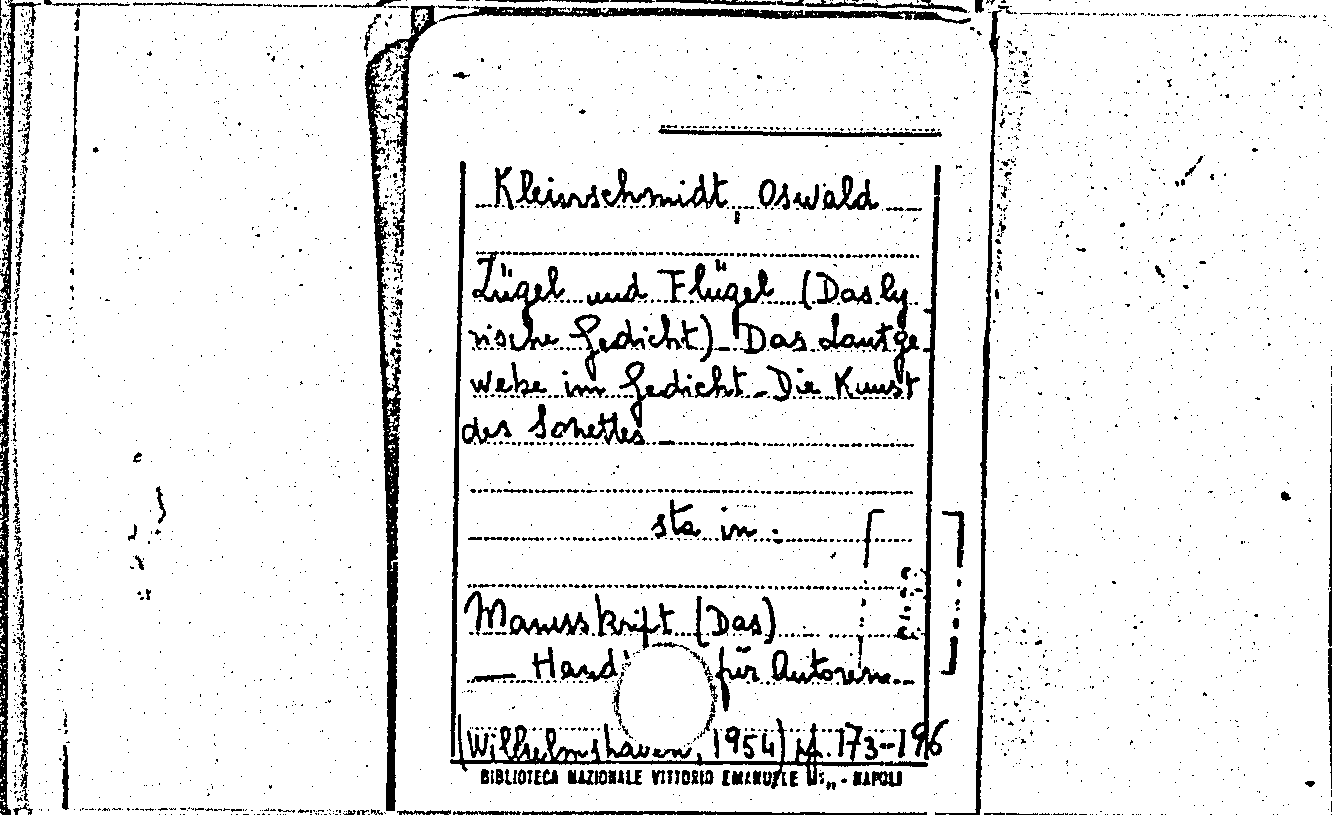 Kleinschmidt, Oswald
Zügel und Flügel (Das ly
rische Gedicht) - Das Lautge-
webe im Gedicht - Die Kunst
des Sonettes -
sta in:
Manusskript (Das)
— Hand für Autoren.
(Wilhelmshaven, 1954) pp. 173-196
BIBLIOTECA NAZIONALE VITTORIO EMANUELE III„ - NAPOLI